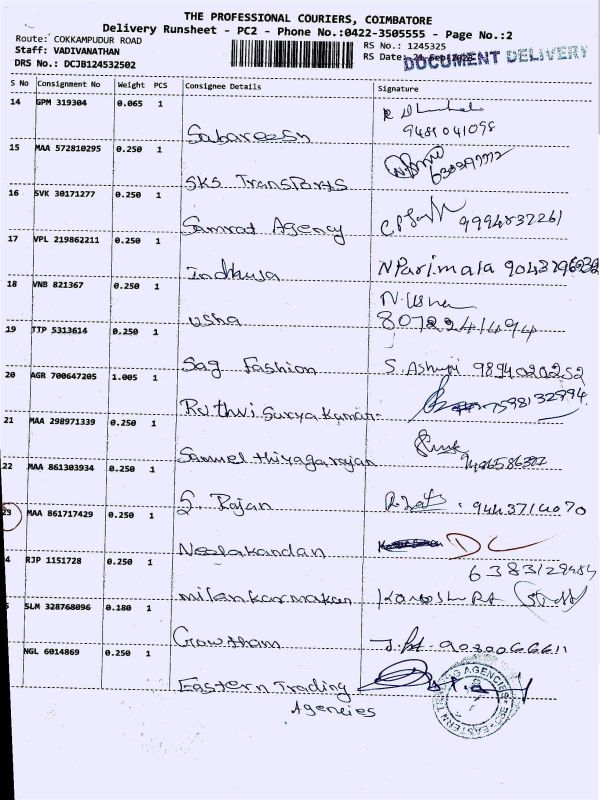 THE PROFESSIONAL COURIERS, COIMBATORE
Delivery Runsheet - PC2 - Phone No.:0422-3505555 - Page No.:2
Route: COKKAMPUDUR ROAD
RS No.: 1245325
Staff: VADIVANATHAN
RS Date:
DOCUMENT DELIVERY
DRS No.: DCJB124532502
S No Consignment No Weight PCS Consignee Details Signature
14 GPM 319304 0.065 1
9489041098
Sabareesh
15 MAA 572810295 0.250 1
SKS Transports
16 SVK 30171277 0.250 1
Samrat Agency 9994837261
17 VPL 219862211 0.250 1
Indhuja N Parimala
18 VNB 821367 0.250 1
N. Usha
usha 8072241494
19 TTP 5313614 0.250 1
Sag Fashion 9894020252
20 AGR 700647205 1.005 1
Ruthvi Suryakumar 7598132994
21 MAA 298971339 0.250 1
Samuel thiyagarajan
22 MAA 861303934 0.250 1
S. Rajan 9443714070
23 MAA 861717429 0.250 1
Neelakandan DL
4 RJP 1151728 0.250 1
6383129484
milan karmakar
SLM 328768096 0.180 1
Gowtham
NGL 6014869 0.250 1
Eastern Trading
Agencies